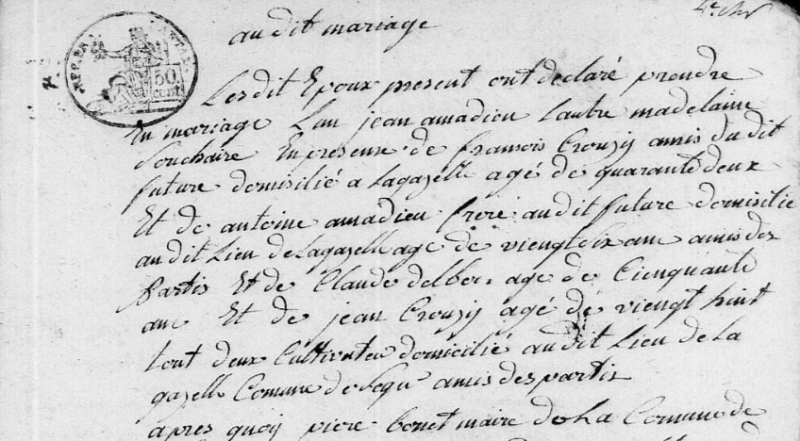 4e
AFF. RE
50
cent
au dit mariage
Les dit Epoux present ont declaré prendre
En mariage Lun jean amadieu Lautre madelaine
Souchaire En presense de francois Crouzy amis du dit
future domisilié a Lagazelle agé de quarante deux
Et de antoine amadieu frere audit future domisilie
au dit Lieu de Lagazelle age de viengt six ans amis des
partis Et de Claude delber age de Cienquante
ans Et de jean Crouzy agé de viengt huit
tout deux Cultivateu domicilié au dit Lieu de La
gazelle Comune de Segu amis des partis
apres quoy piere bonet maire de La Comune de